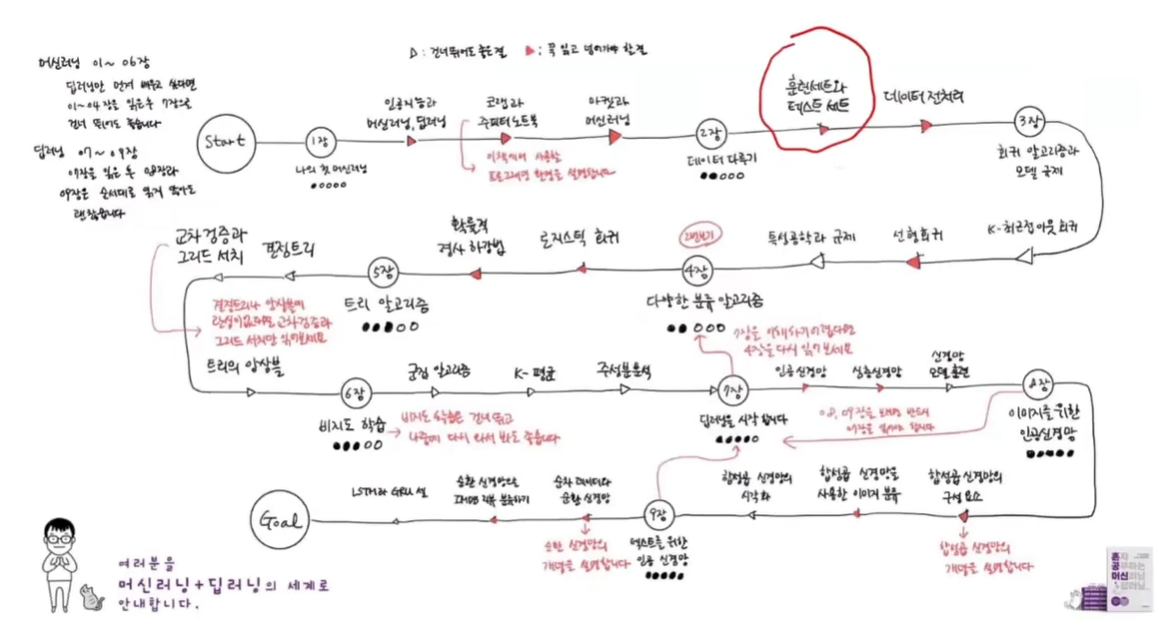 △ : 건너뛰어도 좋은 절 ▶ : 꼭 읽고 넘어가야 할 절
머신러닝 01~06장
딥러닝만 먼저 배우고 싶다면
01~04장을 읽은 후 7장으로
건너 뛰어도 좋습니다
딥러닝 07~09장
07장을 읽은 후 08장과
09장은 순서대로 읽지 않아도
괜찮습니다
Start
1장
나의 첫 머신러닝
인공지능과
머신러닝, 딥러닝
코랩과
주피터 노트북
이 책에서 사용할
프로그래밍 환경을 설명합니다
마켓과
머신러닝
2장
데이터 다루기
훈련 세트와
테스트 세트
데이터 전처리
3장
회귀 알고리즘과
모델 규제
K-최근접 이웃 회귀
선형 회귀
특성 공학과 규제
2번 보기
4장
다양한 분류 알고리즘
로지스틱 회귀
확률적
경사 하강법
5장
트리 알고리즘
결정 트리
교차 검증과
그리드 서치
결정트리나 앙상블에
관심이 없다면 교차검증과
그리드 서치만 읽어보세요
트리의 앙상블
6장
비지도 학습
비지도 학습은 건너 뛰고
나중에 다시 와서 봐도 좋습니다
군집 알고리즘
K-평균
주성분 분석
7장
딥러닝을 시작합니다
7장을 이해하기 어렵다면
4장을 다시 읽어보세요
인공 신경망
심층 신경망
신경망
모델 훈련
8장
이미지를 위한
인공 신경망
08, 09장을 보려면 반드시
07장을 읽어야 합니다
합성곱 신경망의
구성 요소
합성곱 신경망의
개념을 설명합니다
합성곱 신경망을
사용한 이미지 분류
합성곱 신경망의
시각화
9장
텍스트를 위한
인공 신경망
순차 데이터와
순환 신경망
순환 신경망의
개념을 설명합니다
순환 신경망으로
IMDB 리뷰 분류하기
LSTM과 GRU 셀
Goal
여러분을
머신러닝+딥러닝의 세계로
안내합니다.
혼자
공부하는
머신러닝
딥러닝